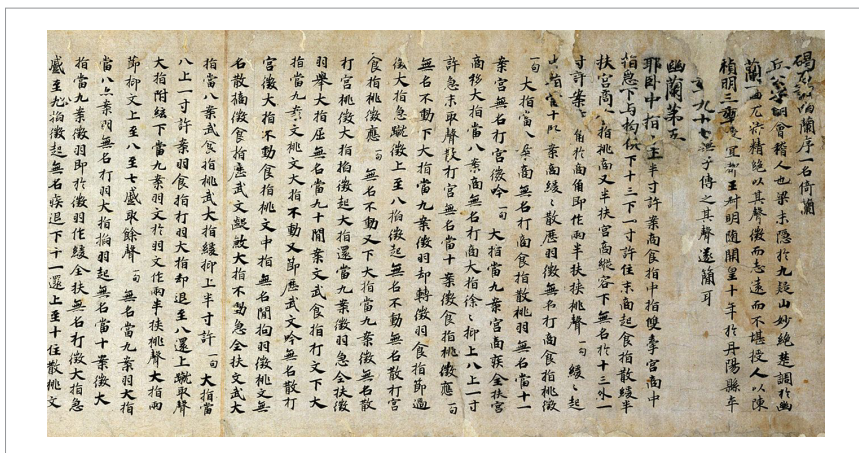 碣石調幽蘭序一名倚蘭
丘公字明會稽人也梁末隱於九疑山妙絕楚調於幽
蘭一曲尤特精絕以其聲微而志遠而不堪授人以陳
禎明三年授宜都王叔明隨開皇十年於丹陽縣卒
年九十七無子傳之其聲遂簡耳
幽蘭第五
耶臥中指十上半寸許案商食指中指雙牽宮商中
指急下与拘俱下十三下一寸許住末商起食指散緩半
扶宮商食指挑商又半扶宮商縱容下無名於十三外一
寸許案商角於商角即作兩半扶挾挑聲一句緩緩起
指當十案商緩緩散歷羽徵無名打商食指挑徵
一句大指當八案商無名打商食指散挑羽無名當十一
案宮無名打宮徵吟一句大指當九案宮商疾全扶宮
商移大指當八案商無名打商大指徐徐抑上八上一寸
許急末取聲散打宮無名當十案徵食指挑徵應一句
無名不動下大指當九案徵羽却轉徵羽食指節過
徐大指急蹴徵上至八掐徵起無名不動無名散打宮
食指挑徵應一句無名不動又下大指當九案徵羽無名散
打宮挑徵大指掐徵起大指還當九案徵羽急全扶徵
羽舉大指屈無名當九十間案文武食指打文下大
指當九案文挑文大指不動又節應武文吟無名散打
宮徵大指不動食指挑文中指無名間拘羽徵挑文無
名散摘徵食指歷武文大指不動急全扶文武大
指當八案武食指挑武大指緩抑上半寸許一句大指當
八上一寸許案羽食指打羽大指却退至八還上蹴取聲
大指附絃下當九案羽文於羽文作兩半扶挾挑聲大指兩
節抑文上至八至七蹴取餘聲一句無名當九案羽大指
當八案間無名打羽大指掐羽起無名當十案徵大
指當九案徵羽即於徵羽作緩全扶無名打徵大指急
蹴至九掐徵起無名疾退下十一還上至十住散挑文